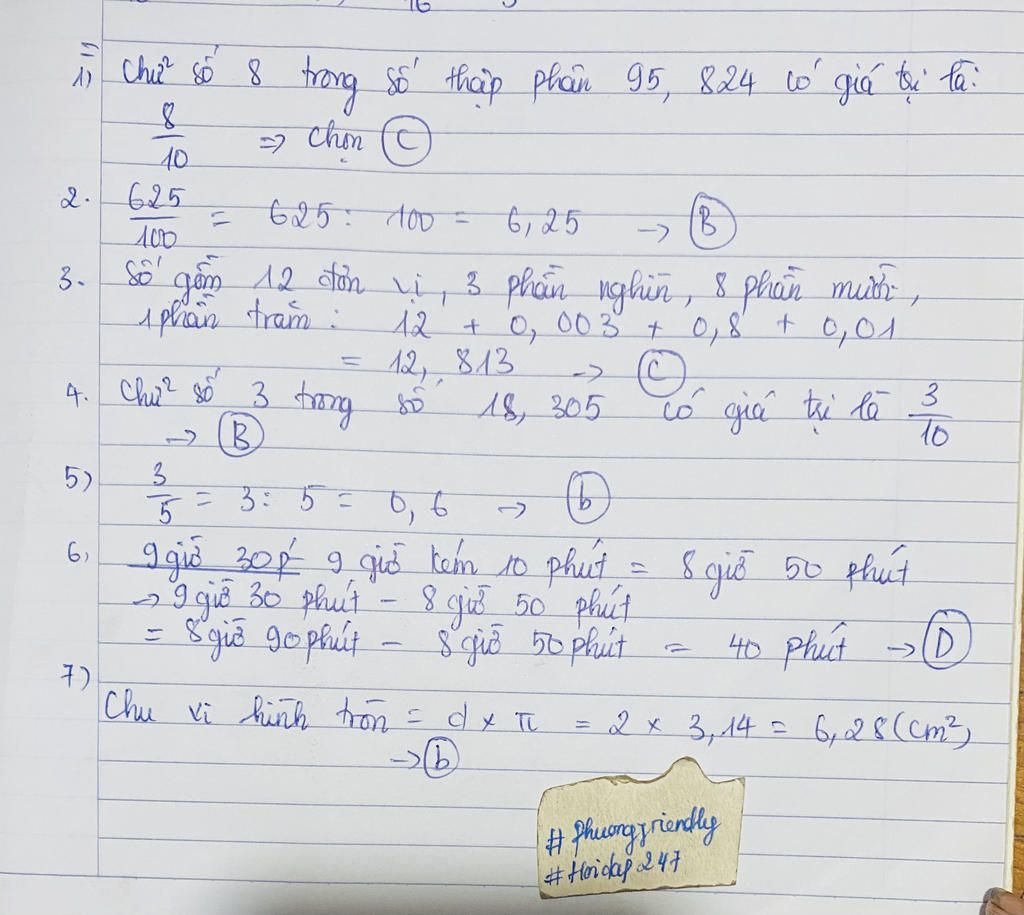 16
=
1) Chữ số 8 trong số thập phân 95, 824 có giá trị là:
8/10 => chọn C
2. 625/100 = 625 : 100 = 6,25 -> B
3. Số gồm 12 đơn vị, 3 phần nghìn, 8 phần mười,
1 phần trăm : 12 + 0, 003 + 0,8 + 0,01
= 12, 813 -> C
4. Chữ số 3 trong số 18, 305 có giá trị là 3/10
-> B
5) 3/5 = 3 : 5 = 0,6 -> b
6, 9 giờ 30p 9 giờ kém 10 phút = 8 giờ 50 phút
-> 9 giờ 30 phút - 8 giờ 50 phút
= 8 giờ 90 phút - 8 giờ 50 phút = 40 phút -> D
7)
Chu vi hình tròn = d x π = 2 x 3,14 = 6,28 (cm²)
-> b
# phuongfriendly
# Hoidap 247